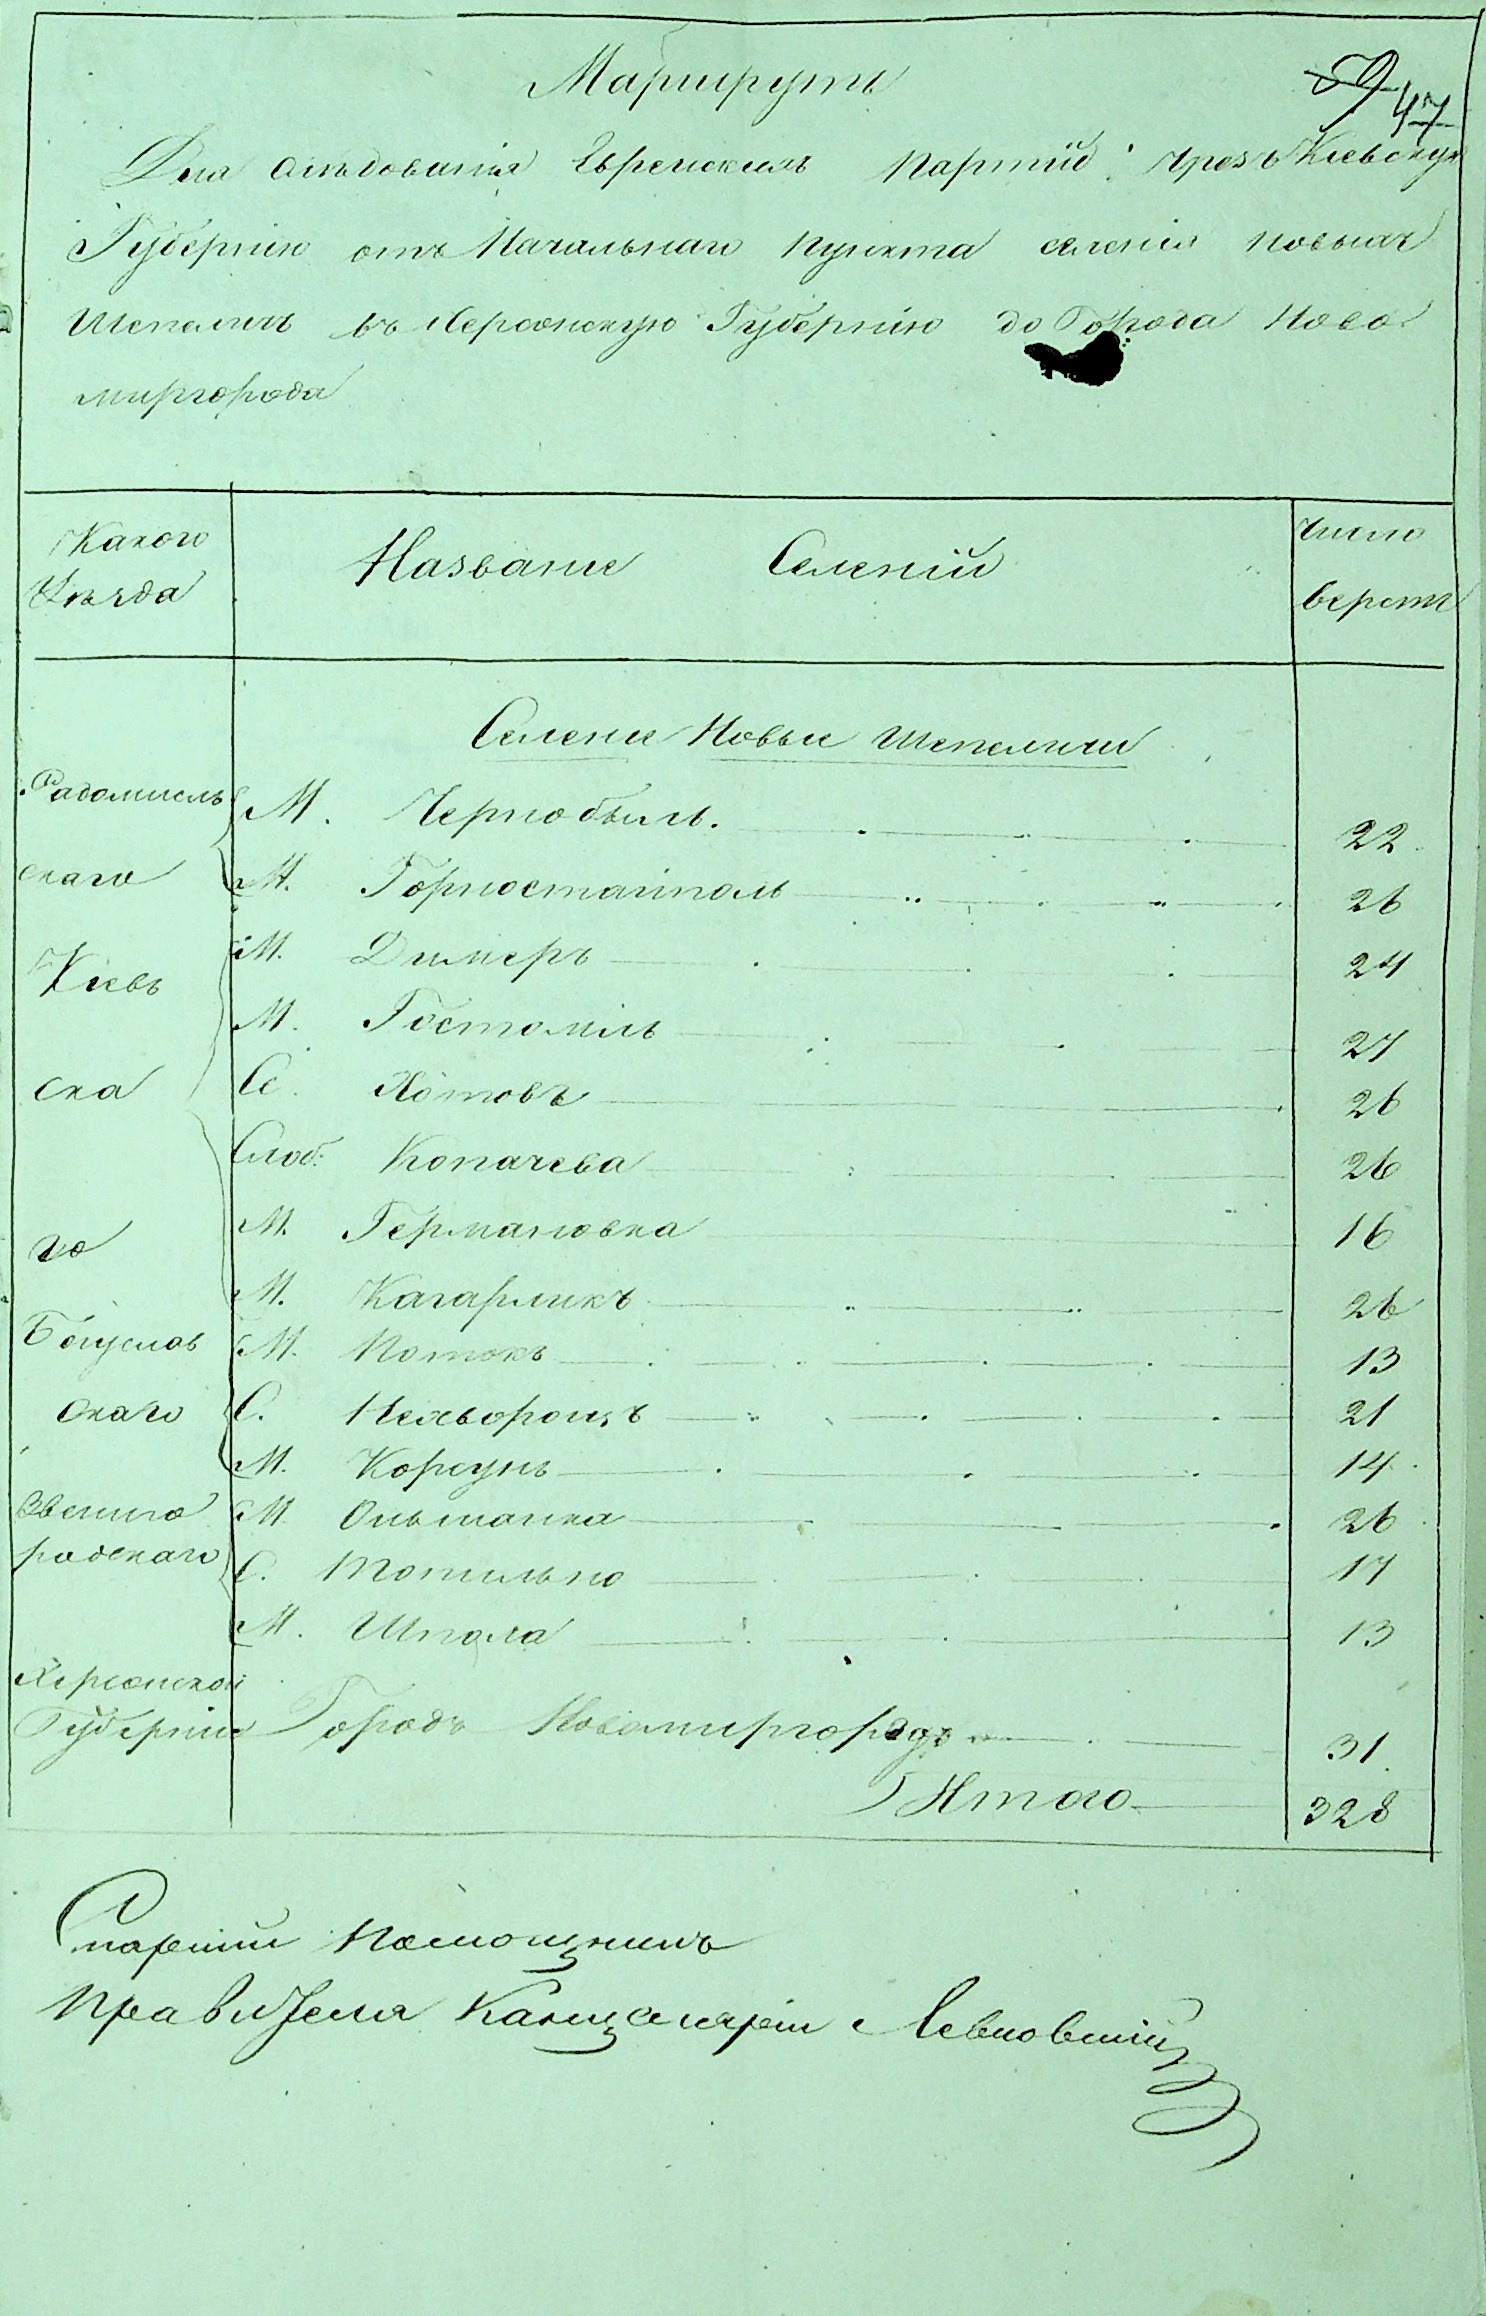 Маршрутъ
47
Для слѣдованія Еврейскихъ партій чрезъ Кіевскую
Губернію отъ Начальнаго пункта селенія Новыхъ
Шепеличъ въ Херсонскую Губернію до Города Ново
миргорода
Какого Уѣзда
Названіе Селеній
Число верстъ
Селеніе Новые Шепеличи
Радомысль М. Чернобыль. 22
скаго М. Горностайполь 26
Кіевъ М. Димеръ 24
М. Гостомль 27
ска Се. Хотовъ 26
Слоб: Копачева 26
го М. Германовка 16
М. Кагарликъ 26
Богуслав М. Потокъ 13
скаго С. Нехворощъ 21
М. Корсунь 14
Звениго М. Ольшанка 26
родскаго С. Топильно 17
М. Шпола 13
Херсонской
Губерніи Городъ Новомиргородъ 31
Итого 328
Старшій Помощникъ
Правителя Канцеляріи Левковскій